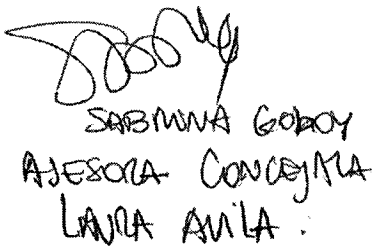 SABRINA GODOY
ASESORA CONCEJALA
LAURA AVILA.